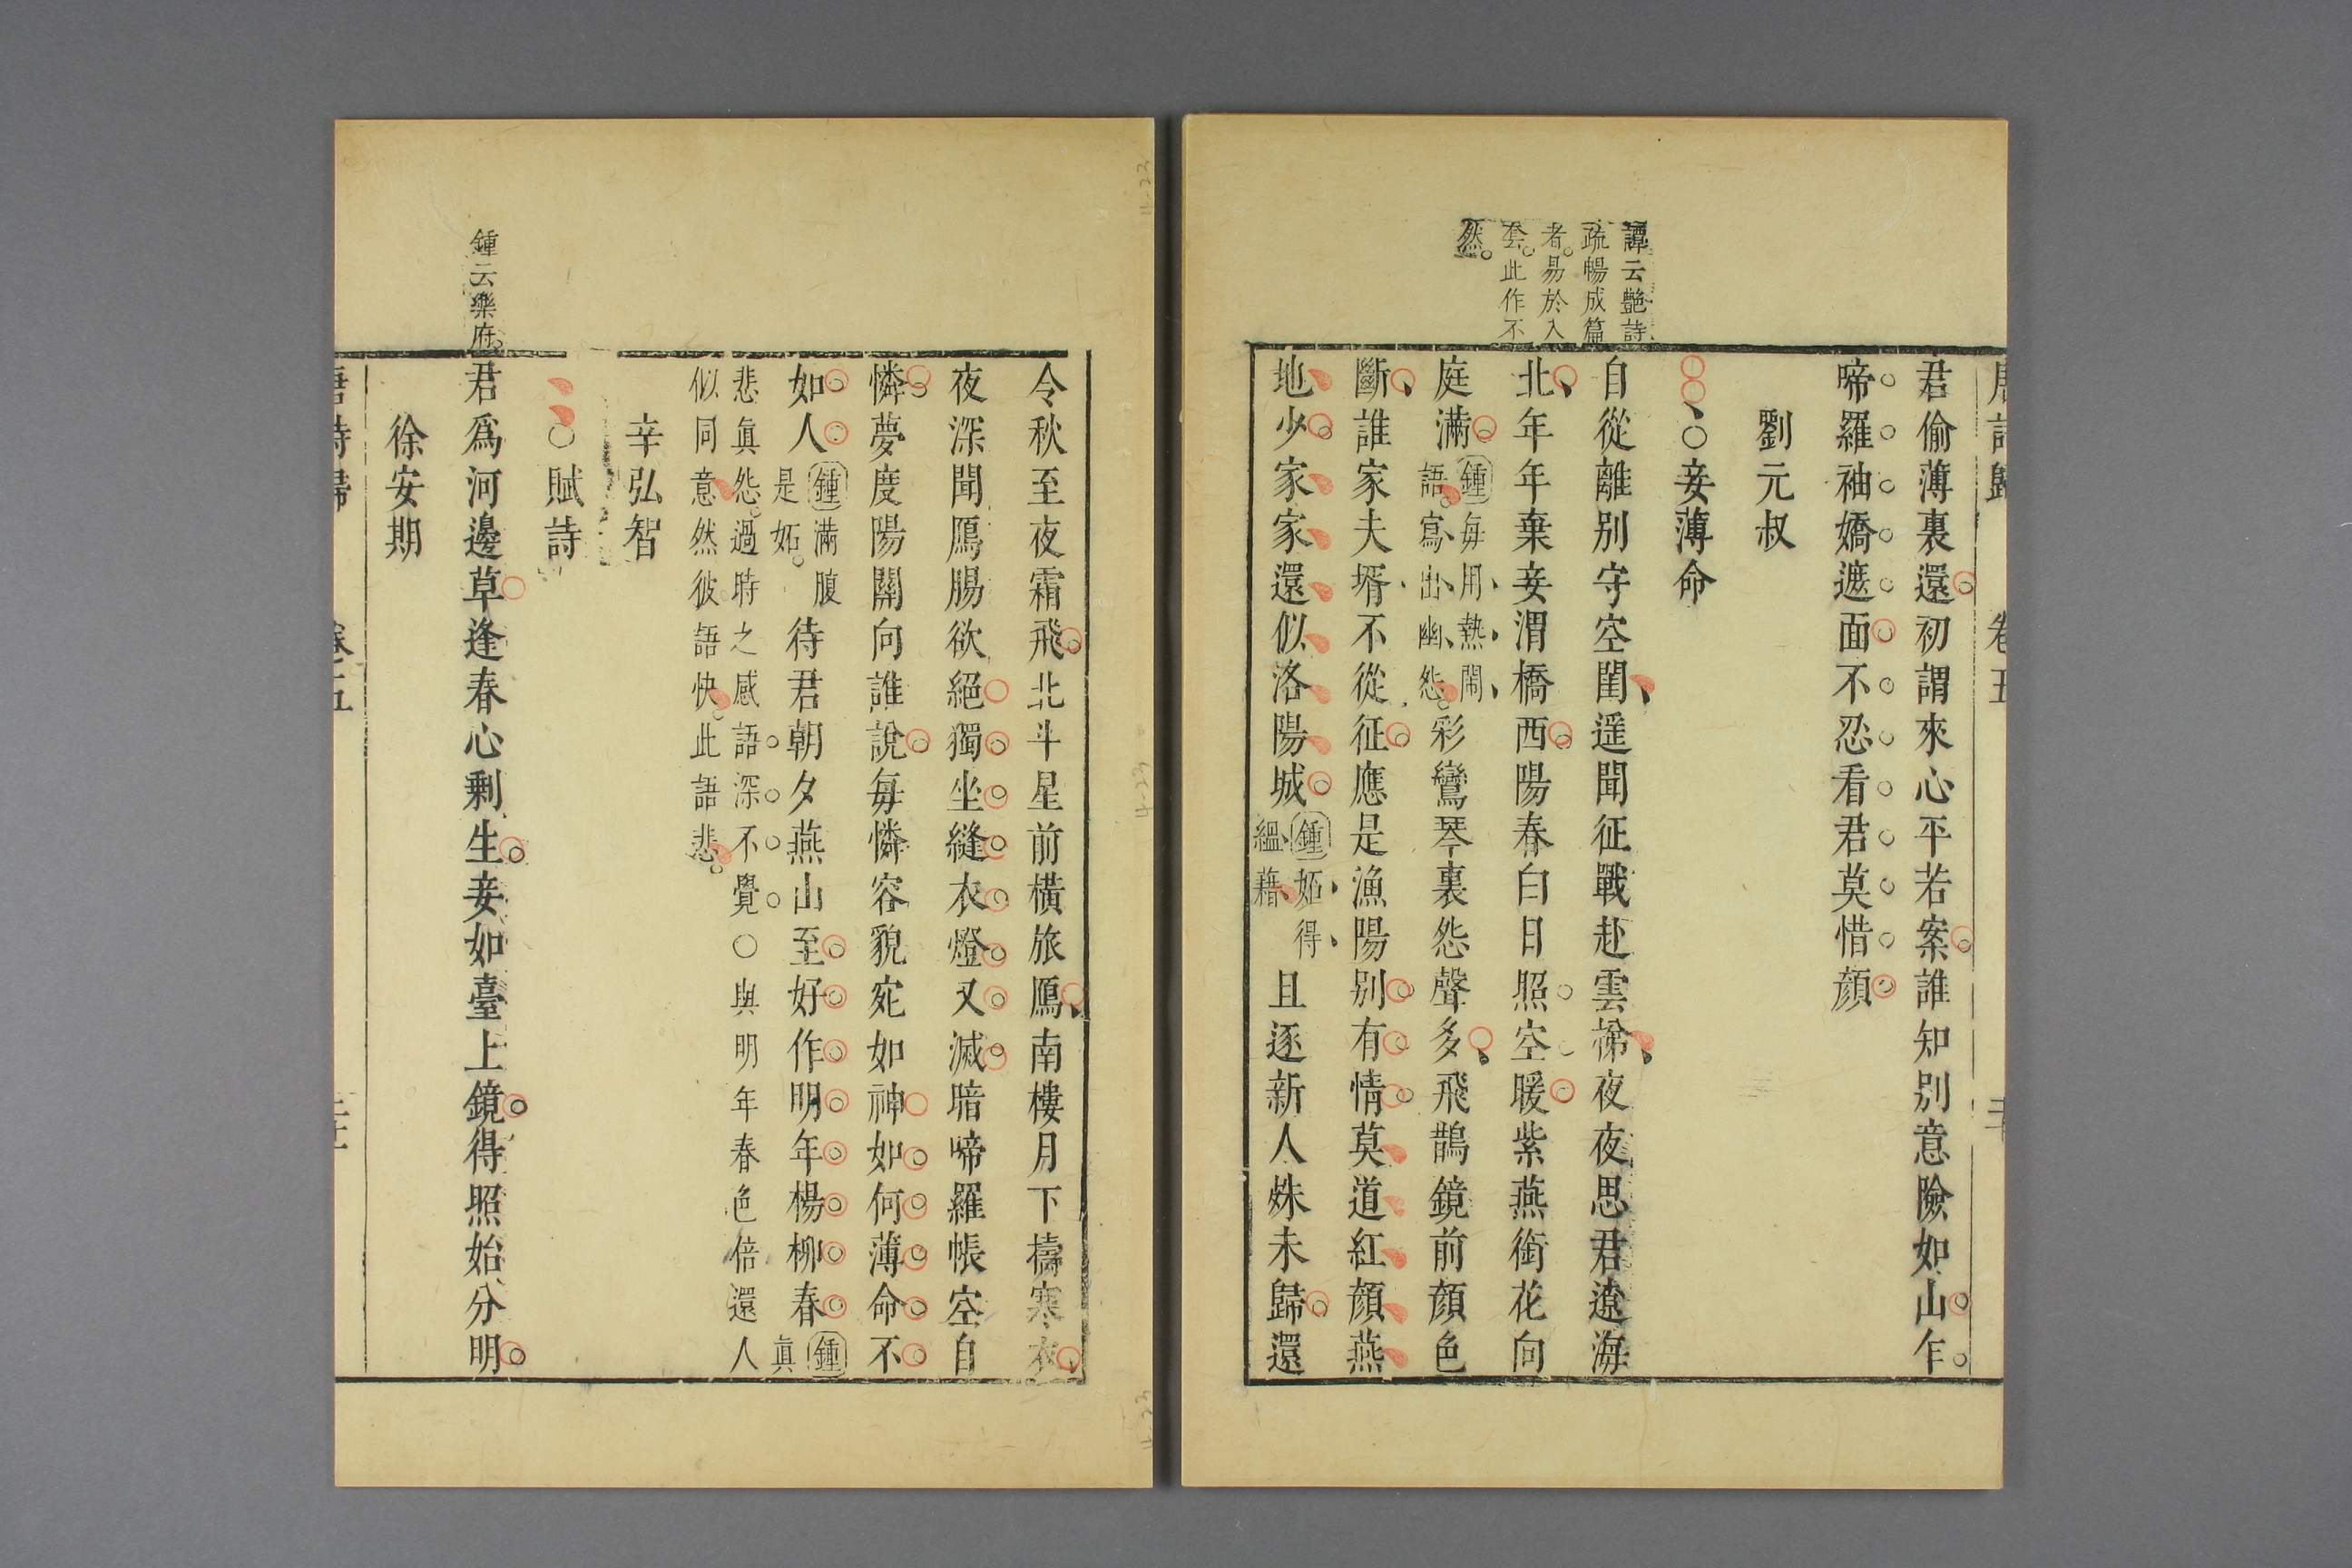 唐詩歸 卷五
君偷薄裏還初謂來心平若案誰知別意險如山乍
啼羅袖嬌遮面不忍看君莫惜顏
劉元叔
○妾薄命
譚云艷詩
疏暢成篇
者易於入
套此作不
然
自從離別守空閨遥聞征戰赴雲梯夜夜思君遼海
北年年棄妾渭橋西陽春白日照空暖紫燕銜花向
庭滿鍾每用熱鬧語寫出幽怨彩鸞琴裏怨聲多飛鵲鏡前顏色
斷誰家夫壻不從征應是漁陽別有情莫道紅顏燕
地少家家還似洛陽城鍾妬得縕藉且逐新人姝未歸還
令秋至夜霜飛北斗星前橫旅鴈南樓月下擣寒衣
夜深聞鴈腸欲絕獨坐縫衣燈又滅暗啼羅帳空自
憐夢度陽關向誰說每憐容貌宛如神如何薄命不
如人鍾滿腹是妬待君朝夕燕山至好作明年楊柳春鍾眞
悲眞怨過時之感語深不覺○與明年春色倍還人
似同意然彼語快此語悲
辛弘智
○賦詩
鍾云樂府
君爲河邊草逢春心剩生妾如臺上鏡得照始分明
徐安期
唐詩歸 卷五